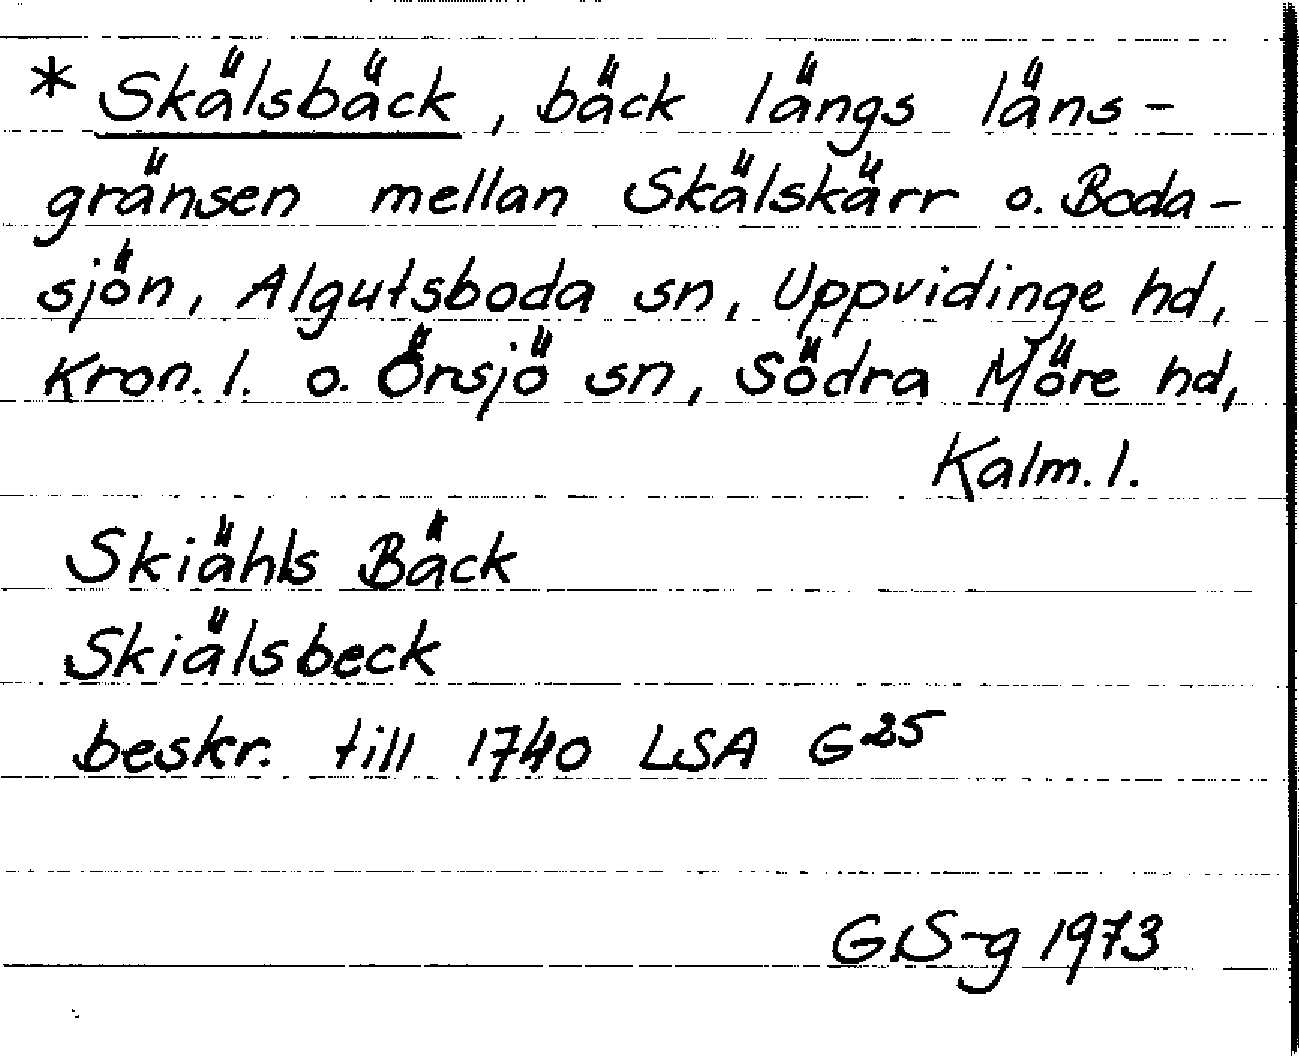 * Skälsbäck, bäck längs läns-
gränsen mellan Skälskärr o. Boda-
sjön, Algutsboda sn, Uppvidinge hd,
Kron. l. o. Örsjö sn, Södra Möre hd,
Kalm. l.
Skiähls Bäck
Skiälsbeck
beskr. till 1740 LSA G25
GS-g 1973